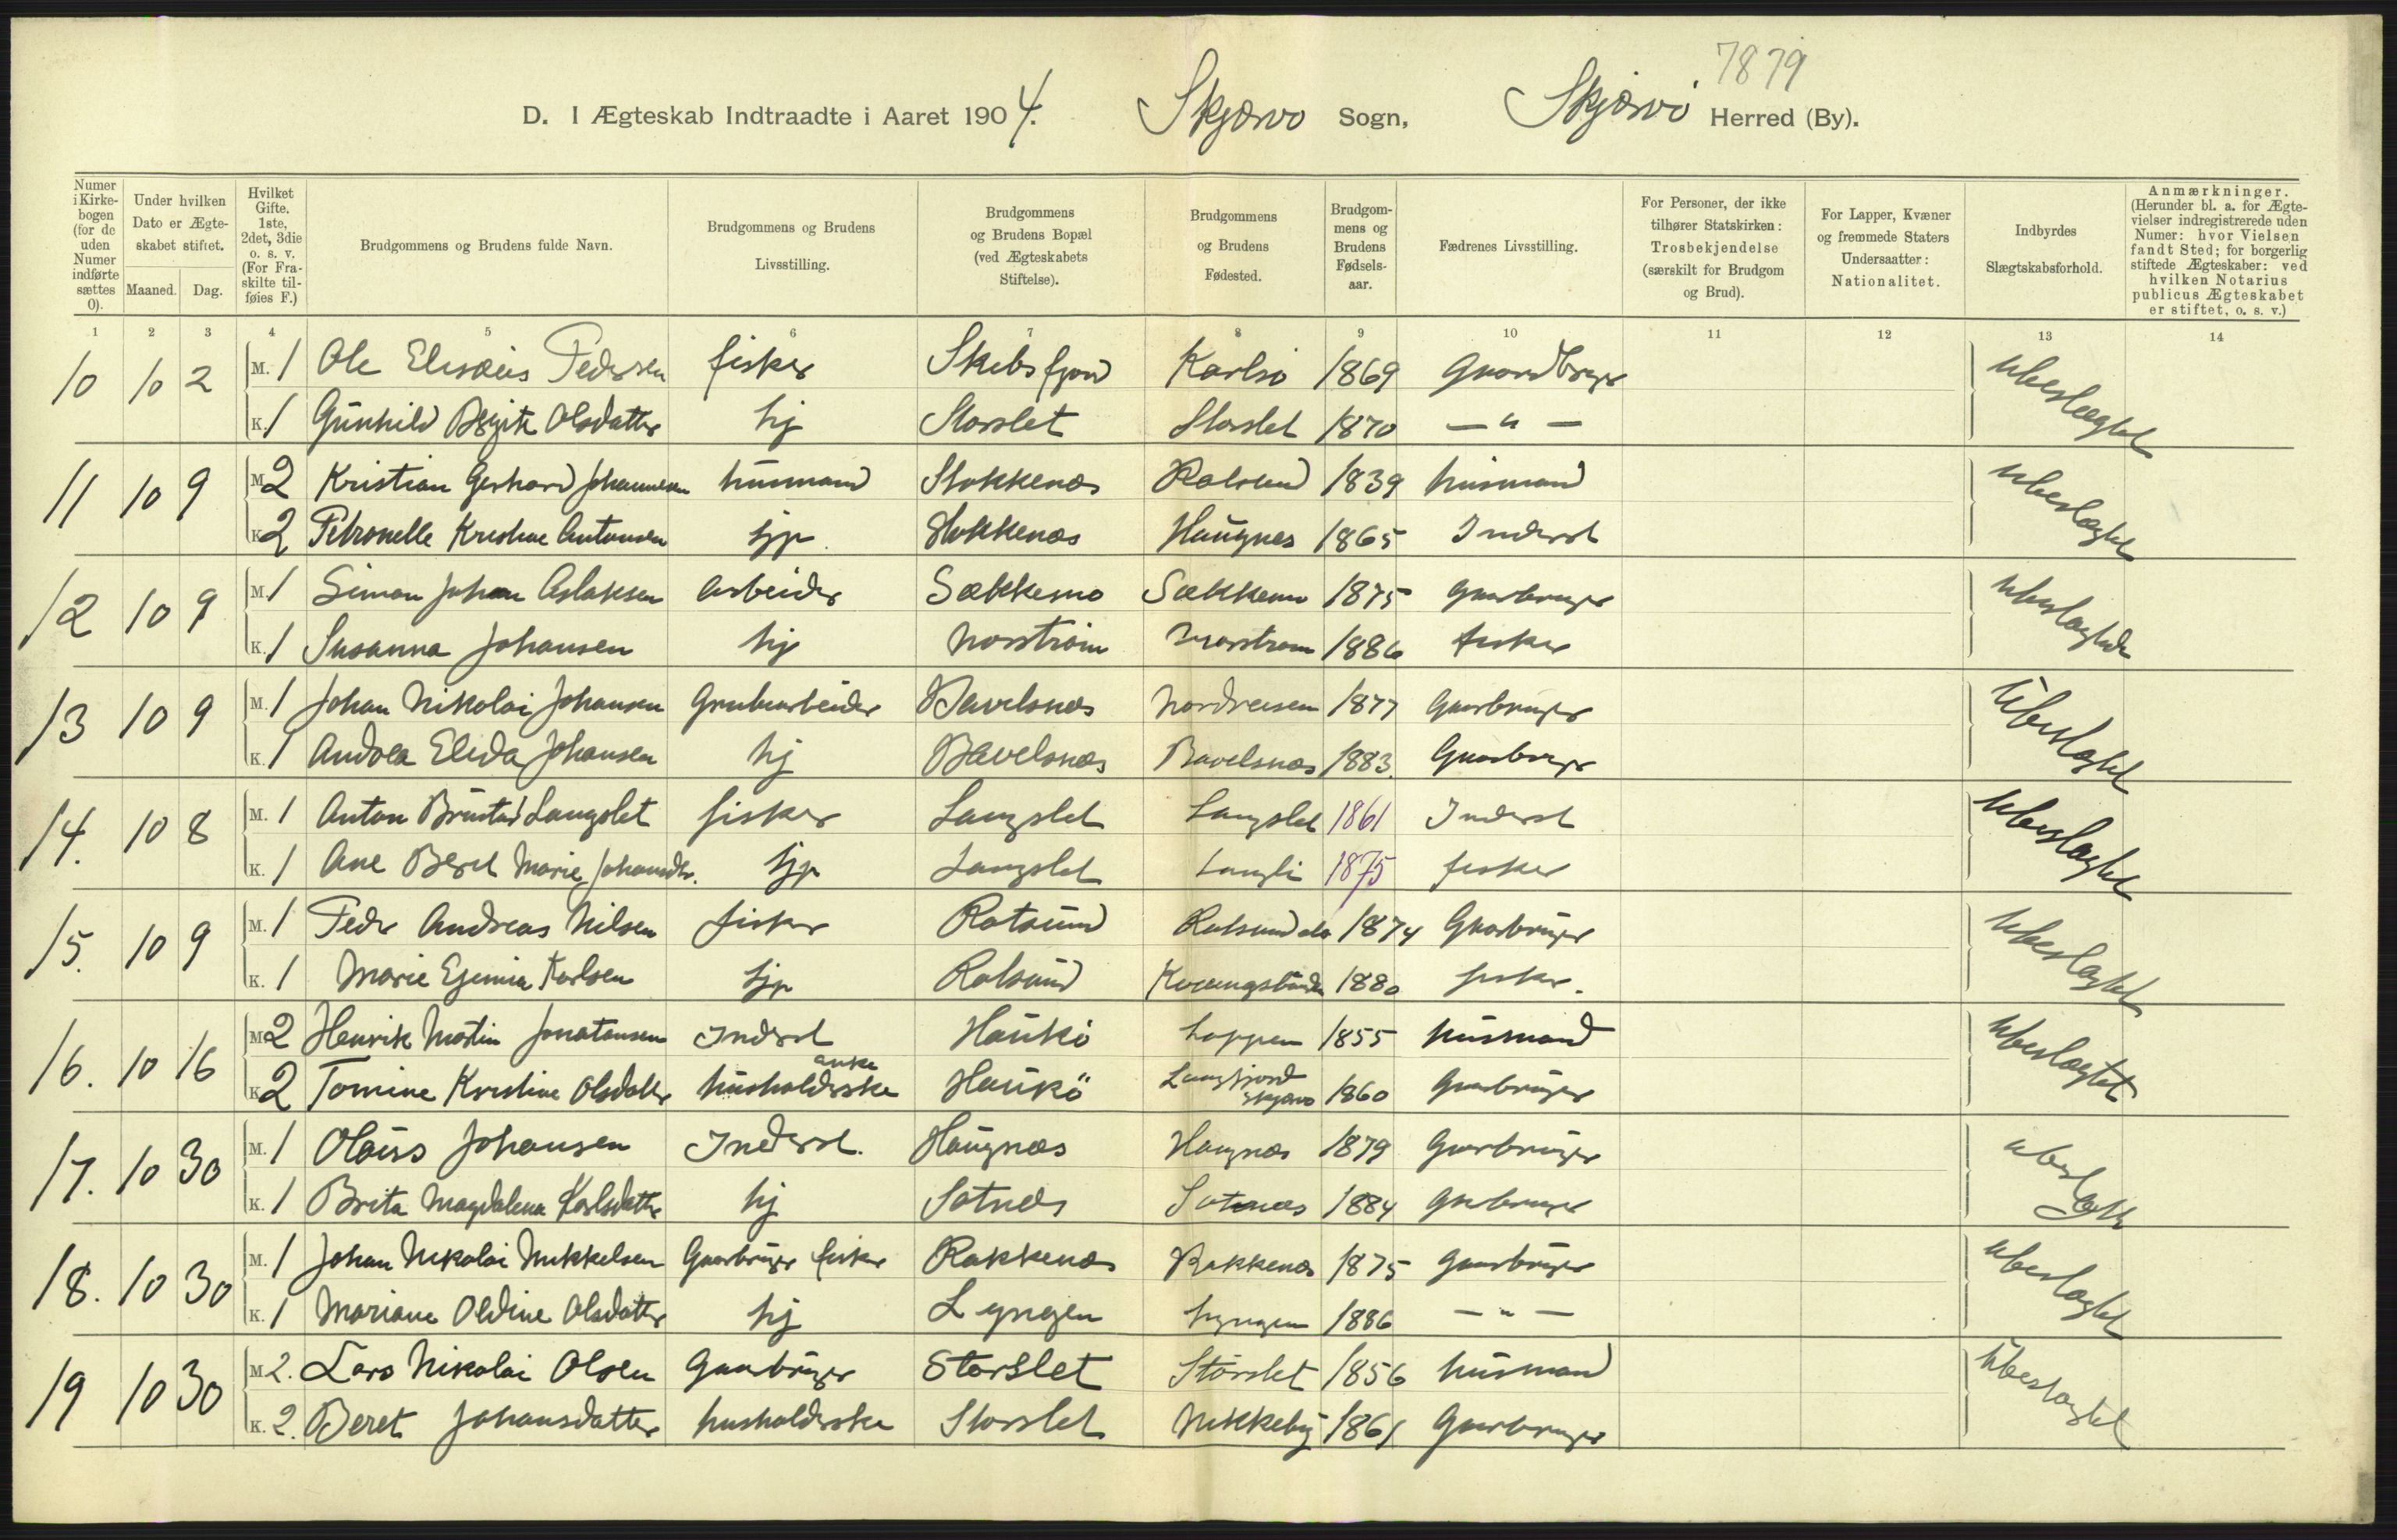 7879
D. I Ægteskab Indtraadte i Aaret 1904. Skjærvø Sogn, Skjærvö Herred (By).
Numer i Kirkebogen (for de uden Numer indførte sættes 0).
Under hvilken Dato er Ægteskabet stiftet.
Maaned. Dag.
Hvilket Gifte. 1ste, 2det, 3die o. s. v. (For Fraskilte tilføies F.)
Brudgommens og Brudens fulde Navn.
Brudgommens og Brudens Livsstilling.
Brudgommens og Brudens Bopæl (ved Ægteskabets Stiftelse).
Brudgommens og Brudens Fødested.
Brudgommens og Brudens Fødselsaar.
Fædrenes Livsstilling.
For Personer, der ikke tilhører Statskirken: Trosbekjendelse (særskilt for Brudgom og Brud).
For Lapper, Kvæner og fremmede Staters Undersaatter: Nationalitet.
Indbyrdes Slægtskabsforhold.
Anmærkninger. (Herunder bl. a. for Ægtevielser indregistrerede uden Numer: hvor Vielsen fandt Sted; for borgerlig stiftede Ægteskaber: ved hvilken Notarius publicus Ægteskabet er stiftet, o. s. v.)
1 2 3 4 5 6 7 8 9 10 11 12 13 14
10 10 2 M. 1 Ole Elisæus Pedersen fisker Skibsfjord Karlsö 1869 Gaardbruger ubeslægtet
K. 1 Gunhild Bergite Olsdatter hj Storslet Storslet 1870 — " —
11 10 9 M. 2 Kristian Gerhard Johannesen husmand Stokkenæs Rotsund 1839 husmand ubeslægtet
K. 2 Petronelle Kristine Antonsen hjp. Stokkenæs Haugnes 1865 Inderst
12 10 9 M. 1 Simon Johan Aslaksen Arbeider Sækkemo Sækkemo 1875 Gaarbruger ubeslægtede
K. 1 Susanna Johansen hj Norström Norstrom 1886 fisker
13 10 9 M. 1 Johan Nikolai Johansen Grubearbeider Bavelsnæs Nordreisen 1877 Gaarbruger Ubeslægtet
K. 1 Andrea Elida Johansen hj Bavelsnæs Bavelsnæs 1883. Gaarbruger
14. 10 8 M. 1 Anton Brustad Langslet fisker Langslet Langslet 1861 Inderst Ubeslægtet
K. 1 Ane Beret Marie Johansdtr. hjp Langslet Langli 1875 fisker
15. 10 9 M. 1 Peder Andreas Nilsen fisker Rotsund 1874 Gaarbruger ubeslægtet
K. 1 Marie Karlsen hjp Rotsund 1880 fisker.
16. 10 16 M. 2 Henrik Martin Jonatansen Inderst Haukö Loppen 1855 husmand ubeslægtet
K. 2 Tomine Kristine Olsdatter husholderske enke Haukö Langfjord Skjærvø 1860 Gaarbruger
17. 10 30 M. 1 Olaus Johansen Inderst. Haugnæs Haugnæs 1879 Gaarbruger ubeslægtet
K. 1 Brita Magdalena Karlsdatter hj Sotnæs Sotnæs 1884 Gaarbruger
18. 10 30 M. 1 Johan Nikolai Mikkelsen Gaarbruger fisker Rakkenæs Rakkenæs 1875 Gaarbruger ubeslægtet
K. 1 Mariane Oldine Olsdatter hj Lyngen Lyngen 1886 — " —
19 10 30 M. 2. Lars Nikolai Olsen Gaarbruger Storslet Storslet 1856 husmand Ubeslægtet
K. 2. Beret Johansdatter husholderske Storslet Nikkeby 1861 Gaarbruger